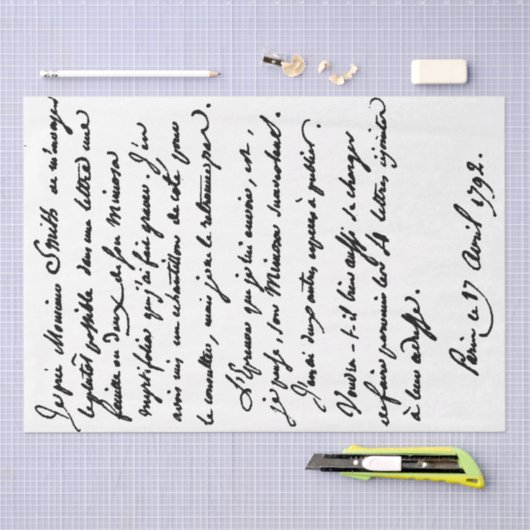 Je prie Monsieur Smith de m'envoyer
le plutôt possible dans une lettre une
feuille ou deux de son Mimosa
mystifiée que j'ai fait graver. J'en
avois mis un echantillon de coté pour
le consulter, mais je ne le retrouve pas.
L'Epreuve que je lui envoie, est,
je pense, son Mimosa suaveolens.
J'en ai deux autres especes à publier.
Voudra-t-il bien aussi se charger
de faire parvenir les 4 lettres, cy jointes
à leur adresse.
Paris le 17 Avril 1792.